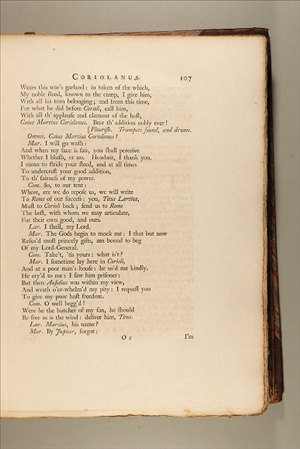 CORIOLANUS. 107
Wears this war's garland: in token of the which,
My noble steed, known to the camp, I give him,
With all his trim belonging; and from this time,
For what he did before Corioli, call him,
With all th' applause and clamour of the host,
Caius Martius Coriolanus. Bear th' addition nobly ever!
[Flourish. Trumpets sound, and drums.
Omnes. Caius Martius Coriolanus!
Mar. I will go wash:
And when my face is fair, you shall perceive
Whether I blush, or no. Howbeit, I thank you.
I mean to stride your steed, and at all times
To undercrest your good addition,
To th' fairness of my power.
Com. So, to our tent:
Where, ere we do repose us, we will write
To Rome of our success: you, Titus Lartius,
Must to Corioli back; send us to Rome
The best, with whom we may articulate,
For their own good, and ours.
Lar. I shall, my Lord.
Mar. The Gods begin to mock me: I that but now
Refus'd most princely gifts, am bound to beg
Of my Lord-General.
Com. Take't, 'tis yours: what is't?
Mar. I sometime lay here in Corioli,
And at a poor man's house: he us'd me kindly.
He cry'd to me: I saw him prisoner:
But then Aufidius was within my view,
And wrath o'er-whelm'd my pity: I request you
To give my poor host freedom.
Com. O well begg'd!
Were he the butcher of my son, he should
Be free as is the wind: deliver him, Titus.
Lar. Martius, his name?
Mar. By Jupiter, forgot:
O 2 I'm